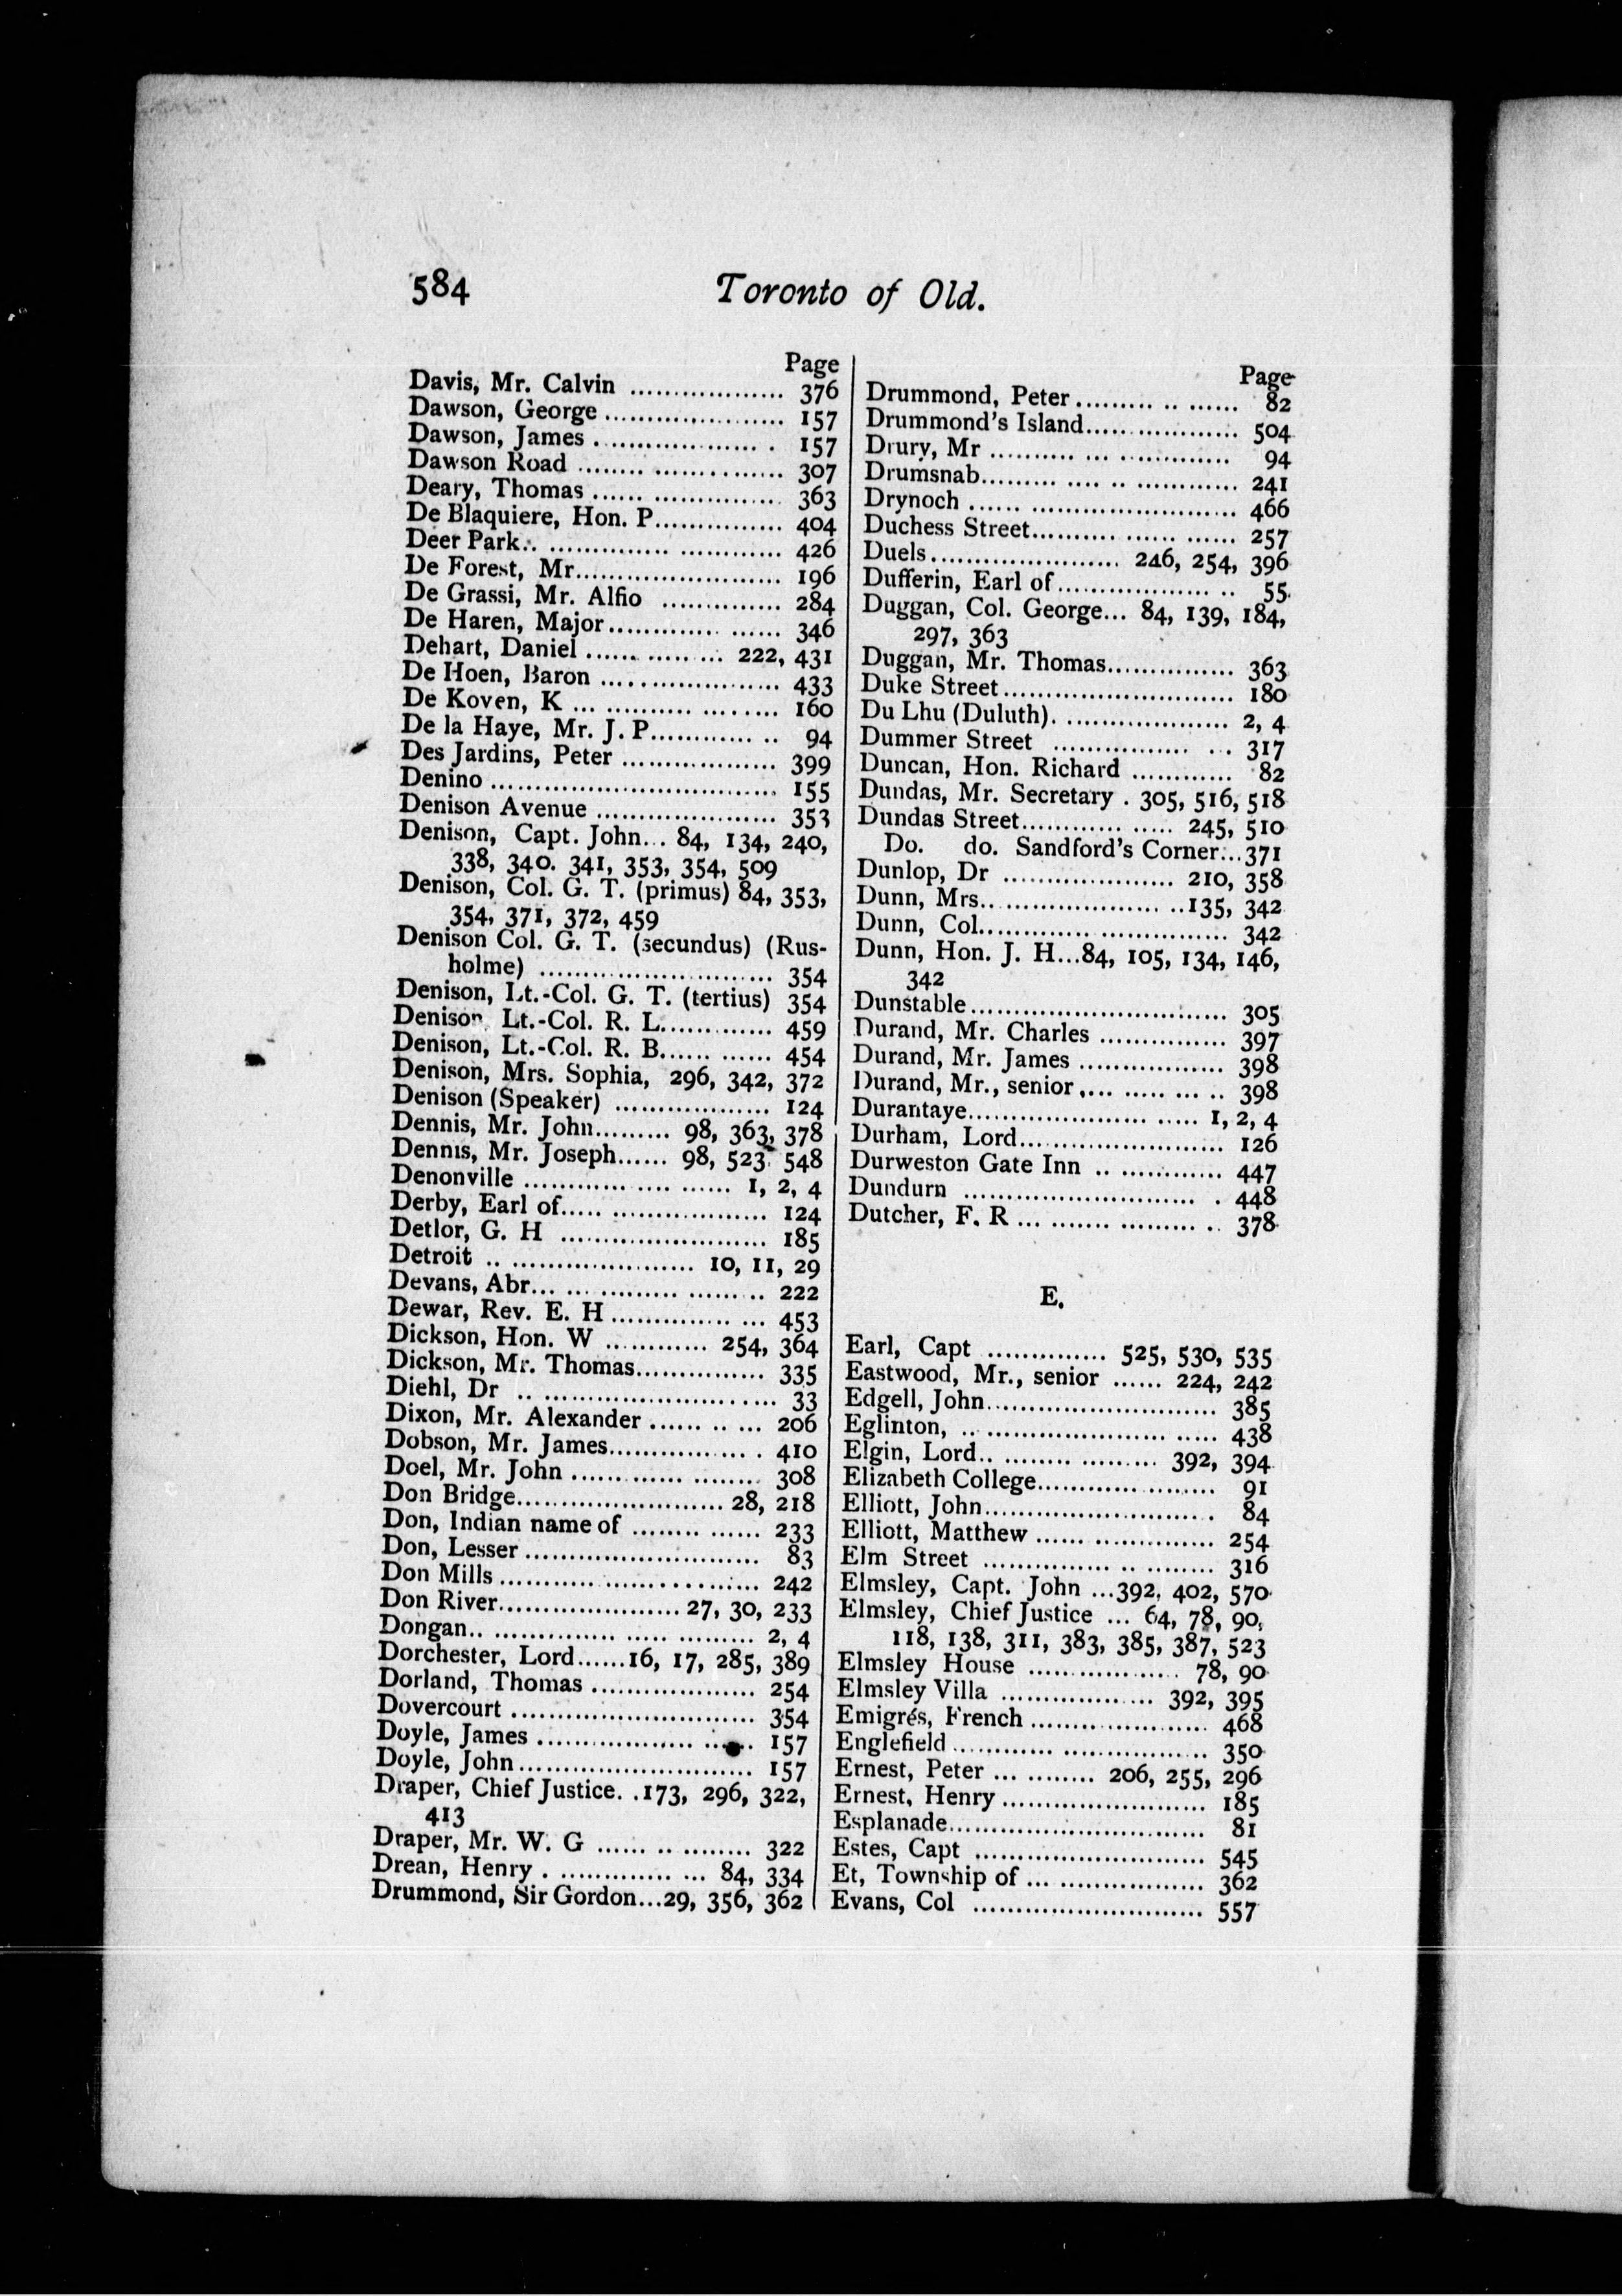 584 Toronto of Old.
Page
Davis, Mr. Calvin .................. 376
Dawson, George ..................... 157
Dawson, James ..................... 157
Dawson Road ....................... 307
Deary, Thomas ..................... 363
De Blaquiere, Hon. P............... 404
Deer Park.......................... 426
De Forest, Mr...................... 196
De Grassi, Mr. Alfio .............. 284
De Haren, Major.................... 346
Dehart, Daniel ................ 222, 431
De Hoen, Baron .................... 433
De Koven, K ....................... 160
De la Haye, Mr. J. P.............. 94
Des Jardins, Peter ................ 399
Denino ............................ 155
Denison Avenue .................... 353
Denison, Capt. John... 84, 134, 240,
338, 340. 341, 353, 354, 509
Denison, Col. G. T. (primus) 84, 353,
354, 371, 372, 459
Denison Col. G. T. (secundus) (Rus-
holme) ........................... 354
Denison, Lt.-Col. G. T. (tertius) 354
Denison, Lt.-Col. R. L............. 459
Denison, Lt.-Col. R. B............. 454
Denison, Mrs. Sophia, 296, 342, 372
Denison (Speaker) ................. 124
Dennis, Mr. John......... 98, 363, 378
Dennis, Mr. Joseph...... 98, 523, 548
Denonville ..................... 1, 2, 4
Derby, Earl of..................... 124
Detlor, G. H ...................... 185
Detroit ..................... 10, 11, 29
Devans, Abr........................ 222
Dewar, Rev. E. H .................. 453
Dickson, Hon. W ............ 254, 364
Dickson, Mr. Thomas............... 335
Diehl, Dr ......................... 33
Dixon, Mr. Alexander .............. 206
Dobson, Mr. James.................. 410
Doel, Mr. John .................... 308
Don Bridge..................... 28, 218
Don, Indian name of ............... 233
Don, Lesser ....................... 83
Don Mills ......................... 242
Don River.................. 27, 30, 233
Dongan........................... 2, 4
Dorchester, Lord......16, 17, 285, 389
Dorland, Thomas ................... 254
Dovercourt ........................ 354
Doyle, James ...................... 157
Doyle, John........................ 157
Draper, Chief Justice. .173, 296, 322,
413
Draper, Mr. W. G .................. 322
Drean, Henry .................. 84, 334
Drummond, Sir Gordon...29, 356, 362
Page
Drummond, Peter................... 82
Drummond's Island................. 504
Drury, Mr ......................... 94
Drumsnab.......................... 241
Drynoch ........................... 466
Duchess Street.................... 257
Duels...................... 246, 254, 396
Dufferin, Earl of................. 55
Duggan, Col. George... 84, 139, 184,
297, 363
Duggan, Mr. Thomas................ 363
Duke Street....................... 180
Du Lhu (Duluth)................... 2, 4
Dummer Street .................... 317
Duncan, Hon. Richard ............ 82
Dundas, Mr. Secretary . 305, 516, 518
Dundas Street.................. 245, 510
Do. do. Sandford's Corner...371
Dunlop, Dr .................... 210, 358
Dunn, Mrs......................135, 342
Dunn, Col......................... 342
Dunn, Hon. J. H...84, 105, 134, 146,
342
Dunstable......................... 305
Durand, Mr. Charles ............... 397
Durand, Mr. James ................. 398
Durand, Mr., senior............... 398
Durantaye....................... 1, 2, 4
Durham, Lord...................... 126
Durweston Gate Inn ............... 447
Dundurn .......................... 448
Dutcher, F. R .................... 378
E.
Earl, Capt .............. 525, 530, 535
Eastwood, Mr., senior ...... 224, 242
Edgell, John...................... 385
Eglinton, ........................ 438
Elgin, Lord.................... 392, 394
Elizabeth College................. 91
Elliott, John..................... 84
Elliott, Matthew .................. 254
Elm Street ....................... 316
Elmsley, Capt. John ...392, 402, 570
Elmsley, Chief Justice ... 64, 78, 90,
118, 138, 311, 383, 385, 387, 523
Elmsley House .................. 78, 90
Elmsley Villa .................. 392, 395
Emigrés, French ................... 468
Englefield ........................ 350
Ernest, Peter ............ 206, 255, 296
Ernest, Henry ..................... 185
Esplanade......................... 81
Estes, Capt ....................... 545
Et, Township of ................... 362
Evans, Col ........................ 557